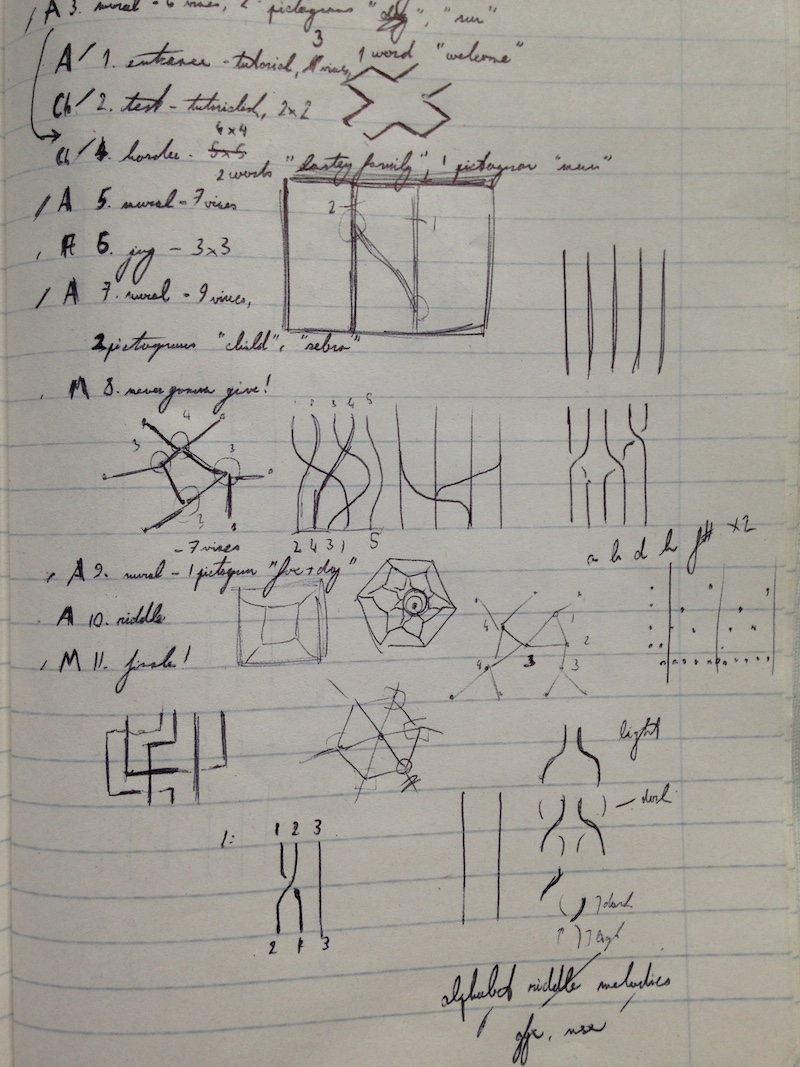 / A 3. mural - 6 vines, 2 pictograms "dog", "sun"
A / 1. entrance - tutorial, 3 vines, 1 word "welcome"
Ch / 2. test - tutorialed, 2x2
4x4
Ch / 4. - 5x5
2 words family", 1 pictogram "man"
/ A 5. mural - 7 vines
2 1
A 6. jug - 3x3
/ A 7. mural - 9 vines,
2 pictograms "child", "zebra"
M 8. never gonna give!
4
3 3
3
1 2 3 4 5
2 4 3 1 5
- 7 vines
a b d b f# x2
A 9. mural - 1 pictogram "fire + dog"
A 10. riddle
/ M 11. finale!
4 1 2
4 3 3
light
dark
1: 1 2 3
2 1 3
dark
light
alphabet riddle melodies
gfx,